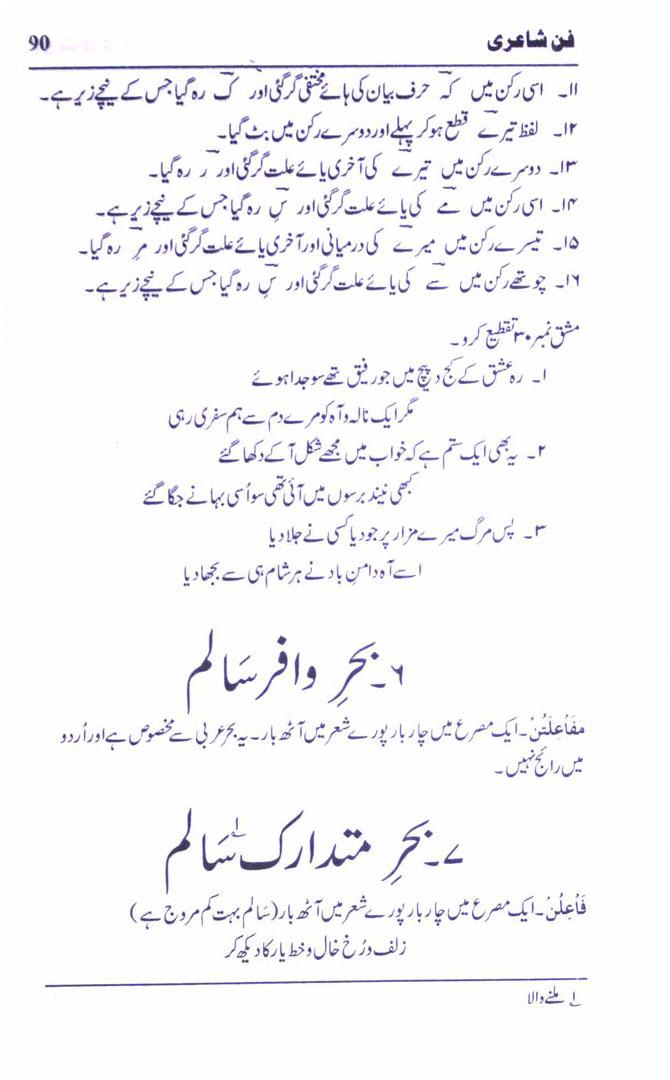 فن شاعری 90
۱۱۔ اسی رکن میں کہ حرف بیان کی ہائے مختفی گر گئی اور کِ رہ گیا جس کے نیچے زیر ہے۔
۱۲۔ لفظ تیرے قطع ہو کر پہلے اور دوسرے رکن میں بٹ گیا۔
۱۳۔ دوسرے رکن میں تیرے کی آخری یائے علت گر گئی اور ر رہ گیا۔
۱۴۔ اسی رکن میں مے کی یائے علت گر گئی اور سِ رہ گیا جس کے نیچے زیر ہے۔
۱۵۔ تیسرے رکن میں میرے کی درمیانی اور آخری یائے علت گر گئی اور مِرِ رہ گیا۔
۱۶۔ چوتھے رکن میں سے کی یائے علت گر گئی اور سِ رہ گیا جس کے نیچے زیر ہے۔
مشق نمبر ۳۰ تقطیع کرو۔
۱۔ رہ عشق کے کج و پیچ میں جو رفیق تھے سو جدا ہوئے
مگر ایک نالہ و آہ کو مرے دم سے ہم سفری رہی
۲۔ یہ بھی ایک ستم ہے کہ خواب میں مجھے شکل آ کے دکھا گئے
کبھی نیند برسوں میں آئی تھی سو اُسی بہانے جگا گئے
۳۔ پس مرگ میرے مزار پر جو دیا کسی نے جلا دیا
اسے آہ دامنِ باد نے ہر شام ہی سے بجھا دیا
۶۔ بحرِ وافر سَالم
مَفَاعِلَتُنْ۔ ایک مصرع میں چار بار پورے شعر میں آٹھ بار۔ یہ بحر عربی سے مخصوص ہے اور اُردو
میں رائج نہیں۔
۷۔ بحرِ متدارک۱ سَالم
فَاْعِلُنْ۔ ایک مصرع میں چار بار پورے شعر میں آٹھ بار (سَالم بہت کم مروج ہے)
زلف و رُخ خال و خط یار کا دیکھ کر
۱ ملنے والا